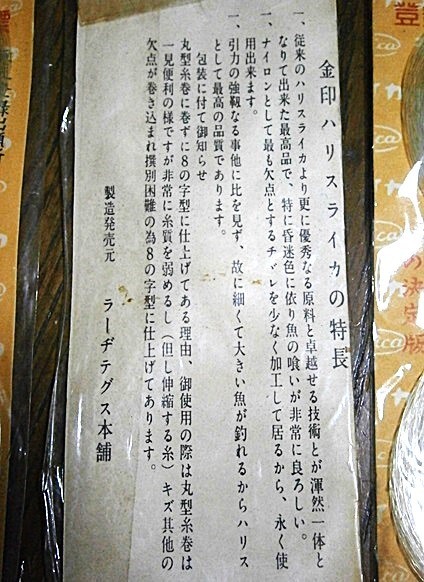 金印ハリスライカの特長
一、従来のハリスライカより更に優秀なる原料と卓越せる技術とが渾然一体と
なりて出来た最高品で、特に昏迷色に依り魚の喰いが非常に良ろしい。
一、ナイロンとして最も欠点とするチヾレを少なく加工して居るから、永く使
用出来ます。
一、引力の強靱なる事他に比を見ず、故に細くて大きい魚が釣れるからハリス
として最高の品質であります。
包装に付て御知らせ
丸型糸巻に巻ずに8の字型に仕上げてある理由、御使用の際は丸型糸巻は
一見便利の様ですが非常に糸質を弱めるし（但し伸縮する糸）キズ其他の
欠点が巻き込まれ撰別困難の為8の字型に仕上げてあります。
製造発売元
ラーヂテグス本舗
登
の決定版